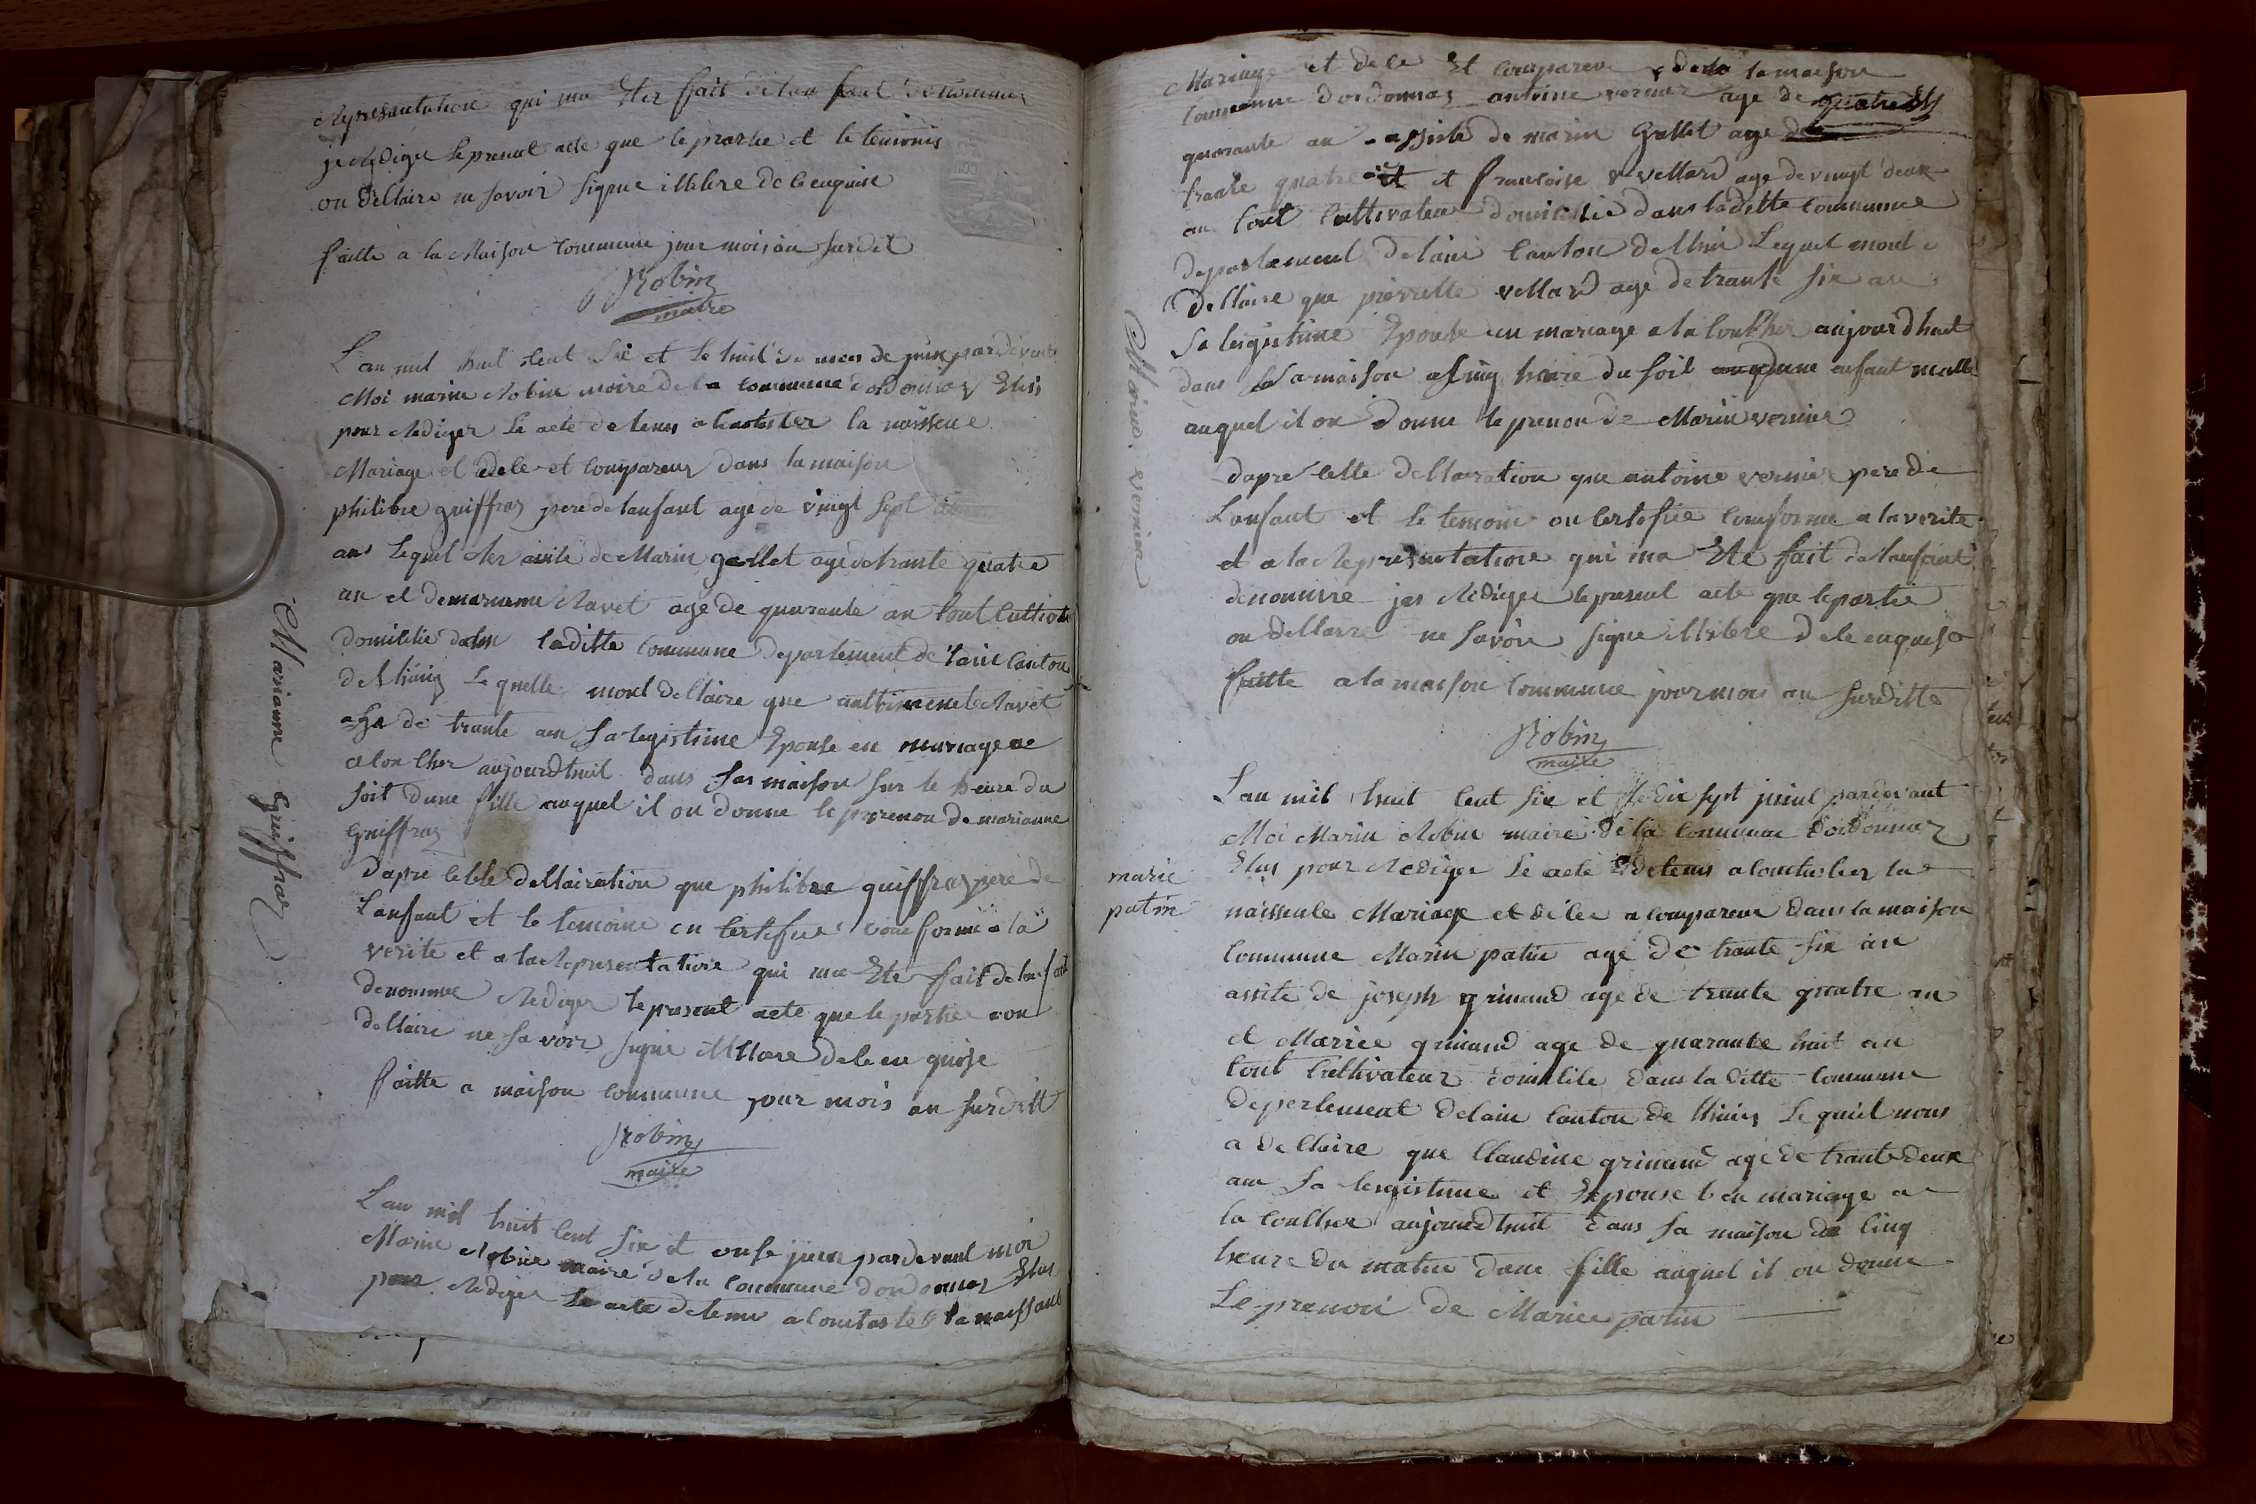 Representation qui ma Eter fait de lan fant denommez
je Rediger Le present acte que le partie et le temoins
on dellaire ne savoir signe illitere de le enquise
faitte a la Maison Commune jour mois an surdit
Robin
maire
L'an mil huit cent six et le huit du mois de juin par devant
Moi marin Robin maire de la commune dordonnaz Elus
pour Rediger Le acte detenus a contster la naissence
Mariage et dele et Compareus dans la maison
philibre guiffraz pere de lanfant age de vingt sept
ans Lequel Ter asisite de Marin gallet age de trante quatre
an et de mariemme Ravet age de quarante an tout Cultivate
domicilie dans laditte Commune departement de l'ain Canton
de lhuis Le quelle mont dellaire que Ravet
age de trante an Sa legistime Epouse en mariage ae
alou cher aujourdhuit dans sas maison sur le heure du
soit dune fille auquel il on donne le prenon de marianne
Guiffraz
Marianne Guiffraz
Dapre celle dellairation que philibre guiffraz pere de
Lanfant et le temoine on Certefiee conforme a la
verite et a la Representatione qui ma Ete fait de lanfant
denommee Rediger le present acte que le partie on
dellaire ne savoir signe illitere de le en quise
faitte a maison commune jour mois an surditt
Robin
maire
L'an mil huit Cent six et onse juin par devant moi
Marin Robin maire de la Commune dordonnaz Elus
pour Rediger Le acte detenu a Contaster la naissance
Mariage et dele Et Compareu dans la maison
Commune dordonnaz antoine vernier age de
quarante an assiste de marin Gallet age de
trante quatre et francoise vellard age de vingt deux
an tout Cultivateur domicillie dans laditte Commune
departement de lain Canton de lhuis Lequel mont
dellaire que pierrette vellard age de trante six an
Sa legistime Epouse en mariage a la Coucher aujourdhuit
dans sa maison a cinq heure du soit dune anfant malle
auquel il on donne le prenon de Marin vernier
Marin vernier
dapre cette dellairation que antoine vernier pere de
Lanfant et Le temoin on Certefiee Conforme a la verite
et a la Representatione qui ma Ete fait de lanfant
denomme jer Rediger le present acte que le partie
on dellaire ne savoir signe illitere de le enquise
faitte a la maison Commune jour mois an surditte
Robin
maire
L'an mil huit Cent six et le dix sept juint par devant
Moi Marin Robin maire de la Commune dordonnaz
Elus pour Rediger Le acte detenus a Contaster la
marie
patin
naissente Mariage et dele a Compareu dans la maison
Commune Marin patin age de trante six an
assite de joseph grinand age de trante quatre an
et Mariee grinand age de quarante huit an
tout Cultivateur domilile dans la ditte Commune
departement delain Canton de lhuis Le quel nous
a dellaire que Claudine grinand age de trante deux
an Sa legistime et Epouse en mariage a
la Coucher aujourdhuit dans sa maison a Cinq
heure du matin dune fille auquel il on donne
Le prenon de Mariee patin